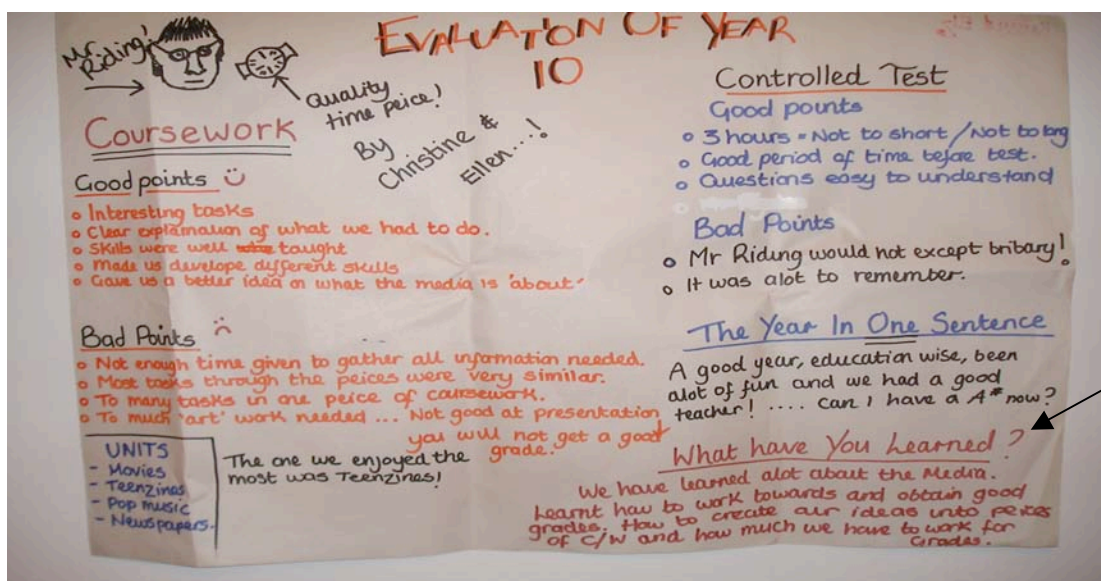 EVALUATON OF YEAR
10
Mr.
Riding!
Quality
time peice!
By
Christine &
Ellen...!
Coursework
Good points
Interesting tasks
Clear explanation of what we had to do.
Skills were well taught
Made us develope different skills
Gave us a better idea on what the media is 'about'
Bad Points
Not enough time given to gather all information needed.
Most tasks through the peices were very similar.
To many tasks in one peice of coursework.
To much 'art' work needed ... Not good at presentation
you will not get a good
grade.
UNITS
- Movies
- Teenzines
- Pop music
- Newspapers.
The one we enjoyed the
most was Teenzines!
Controlled Test
Good points
3 hours = Not to short / Not to long
Good period of time before test.
Questions easy to understand
Bad Points
Mr Riding would not except bribary!
It was alot to remember.
The Year In One Sentence
A good year, education wise, been
alot of fun and we had a good
teacher! .... Can I have a A* now?
What have You Learned?
We have learned alot about the Media.
Learnt how to work towards and obtain good
grades. How to create our ideas into peices
of C/W and how much we have to work for
Grades.